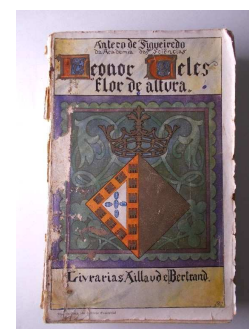 Antero de Figueiredo
da Academia das Sciências
Leonor Teles
flor de altura
Livrarias Aillaud e Bertrand